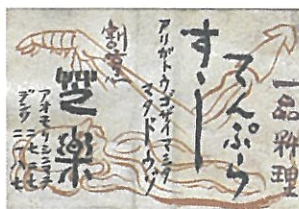 一品料理
てんぷら
すし
アリガトウゴザイマシタ
マタドウゾ
割烹
芝樂
アオモリシンマチ
デンワ